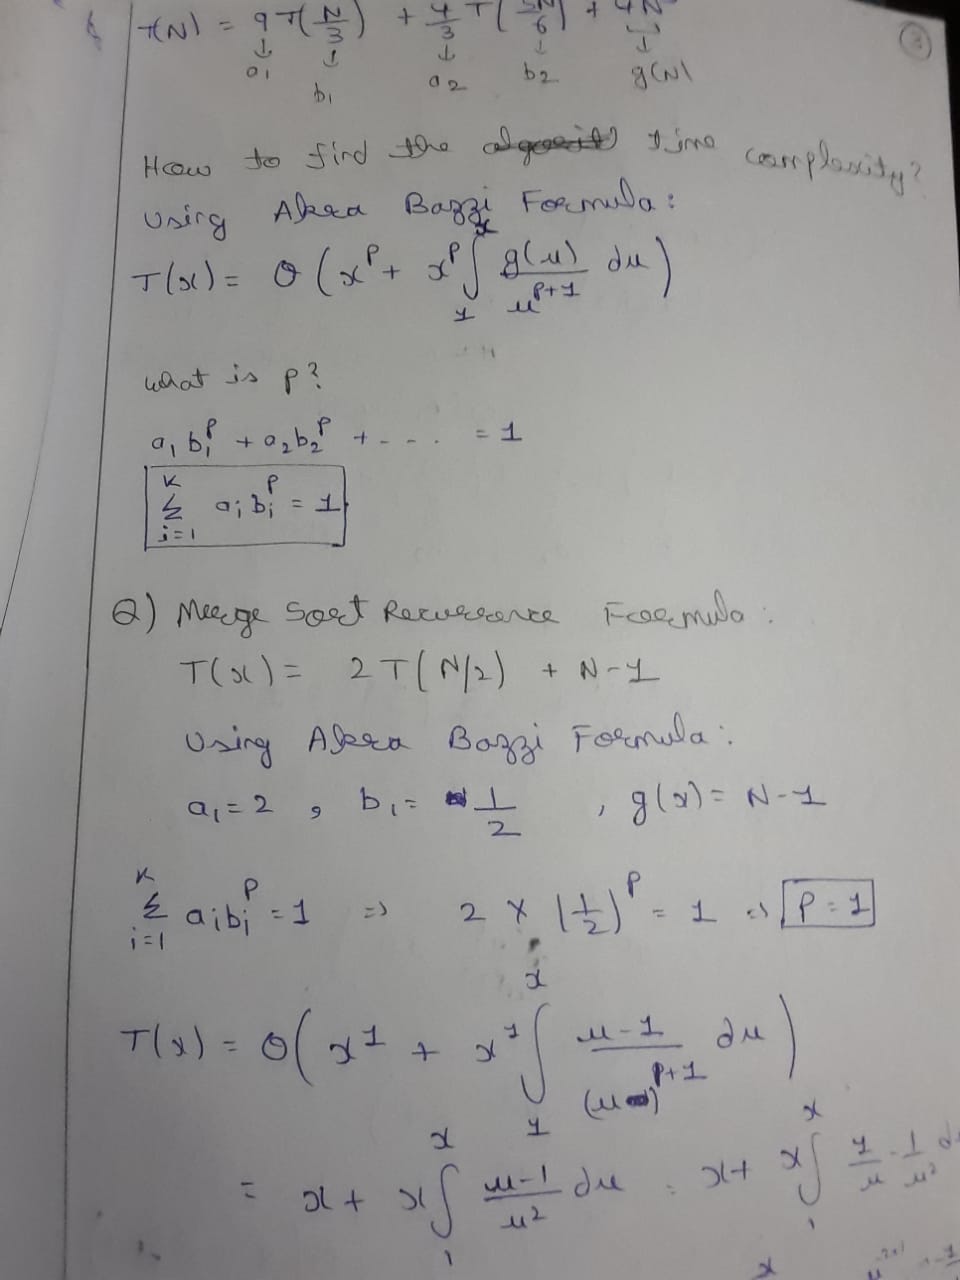 T(N) = 9 T(N/3) + 4/3 T(5N/6) + 4N
↓ ↓ ↓ ↓ ↓
a₁ b₁ a₂ b₂ g(N)
3
How to find the time complexity?
Using Akra Bazzi Formula:
T(x) = Θ(x^p + x^p ∫₁^x g(u)/u^(p+1) du)
what is p?
a₁b₁^p + a₂b₂^p + - - . . = 1
∑_{i=1}^{K} aᵢbᵢ^p = 1
Q) Merge Sort Recurrence Formula:
T(x) = 2T(N/2) + N-1
Using Akra Bazzi Formula:
a₁ = 2 , b₁ = 1/2 , g(x) = N-1
∑_{i=1}^{K} aᵢbᵢ^p = 1 => 2 × (1/2)^p = 1 => P = 1
T(x) = Θ(x^1 + x^1 ∫₁^x (u-1)/(u)^(p+1) du)
= x + x ∫₁^x (u-1)/u² du = x + x ∫₁^x 1/u - 1/u² d
x